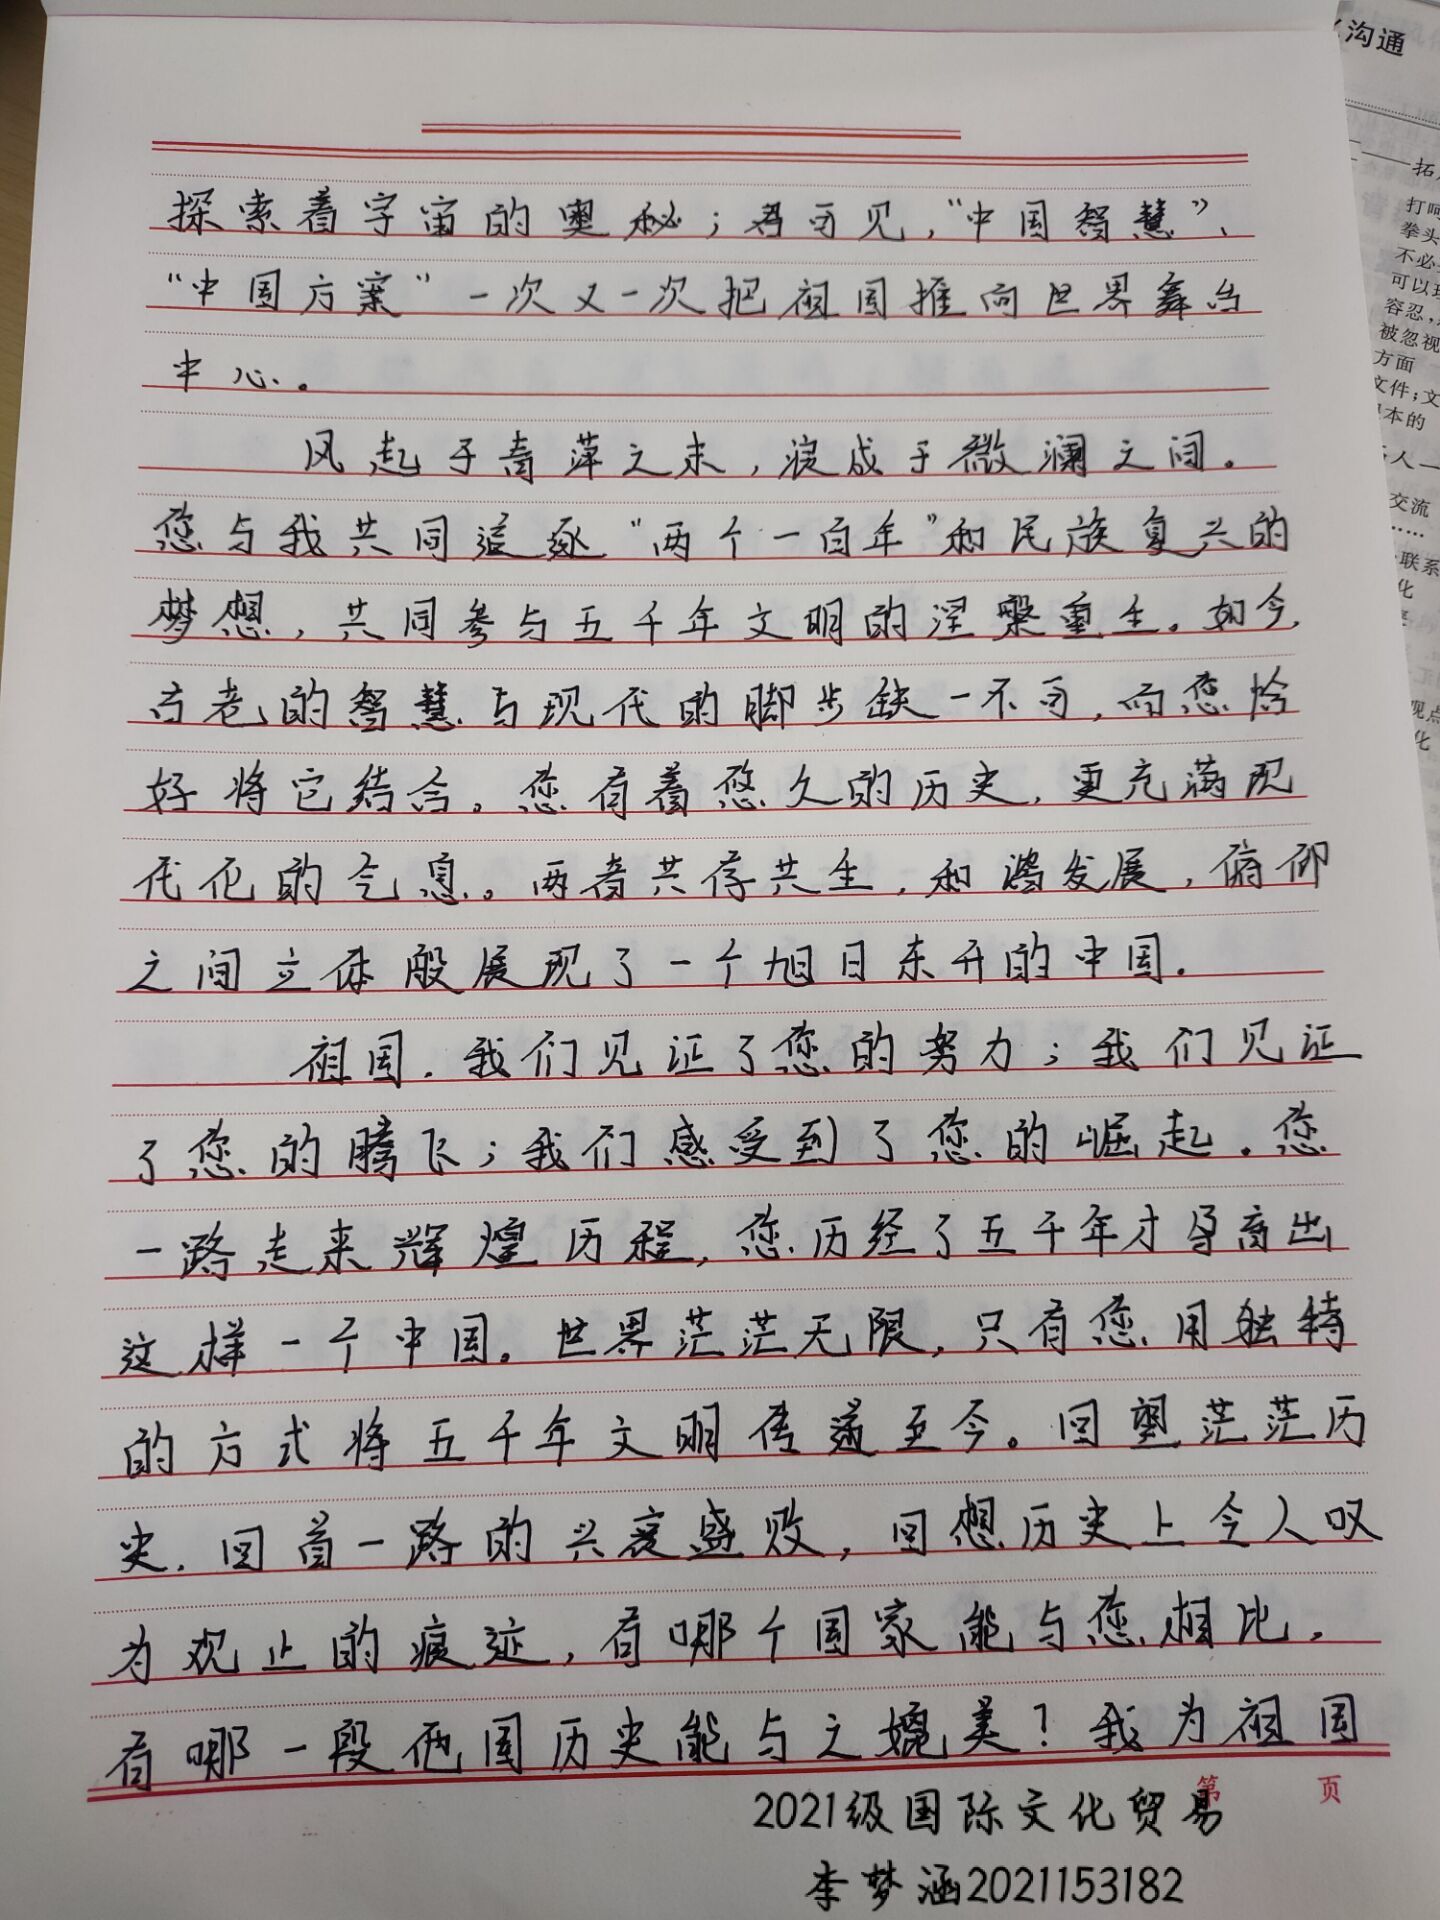 探索着宇宙的奥秘；君可见，“中国智慧”、
“中国方案”一次又一次把祖国推向世界舞台
中心。
风起于青萍之末，浪成于微澜之间。
您与我共同追逐“两个一百年”和民族复兴的
梦想，共同参与五千年文明的涅槃重生。如今，
古老的智慧与现代的脚步缺一不可，而您恰
好将它结合。您有着悠久的历史，更充满现
代化的气息。两者共存共生，和谐发展，俯仰
之间立体般展现了一个旭日东升的中国。
祖国，我们见证了您的努力；我们见证
了您的腾飞；我们感受到了您的崛起。您
一路走来辉煌历程，您历经了五千年才孕育出
这样一个中国。世界茫茫无限，只有您用独特
的方式将五千年文明传递至今。回望茫茫历
史，回首一路的兴衰盛败，回想历史上令人叹
为观止的痕迹，有哪个国家能与您相比，
有哪一段他国历史能与之媲美？我为祖国
第 页
2021级国际文化贸易
李梦涵2021153182
沟通
——拓
打呵
拳头
不必
可以理
容忍，
被忽视
方面
文件；文
本的
人一
交流
……
联系
化
观点
化